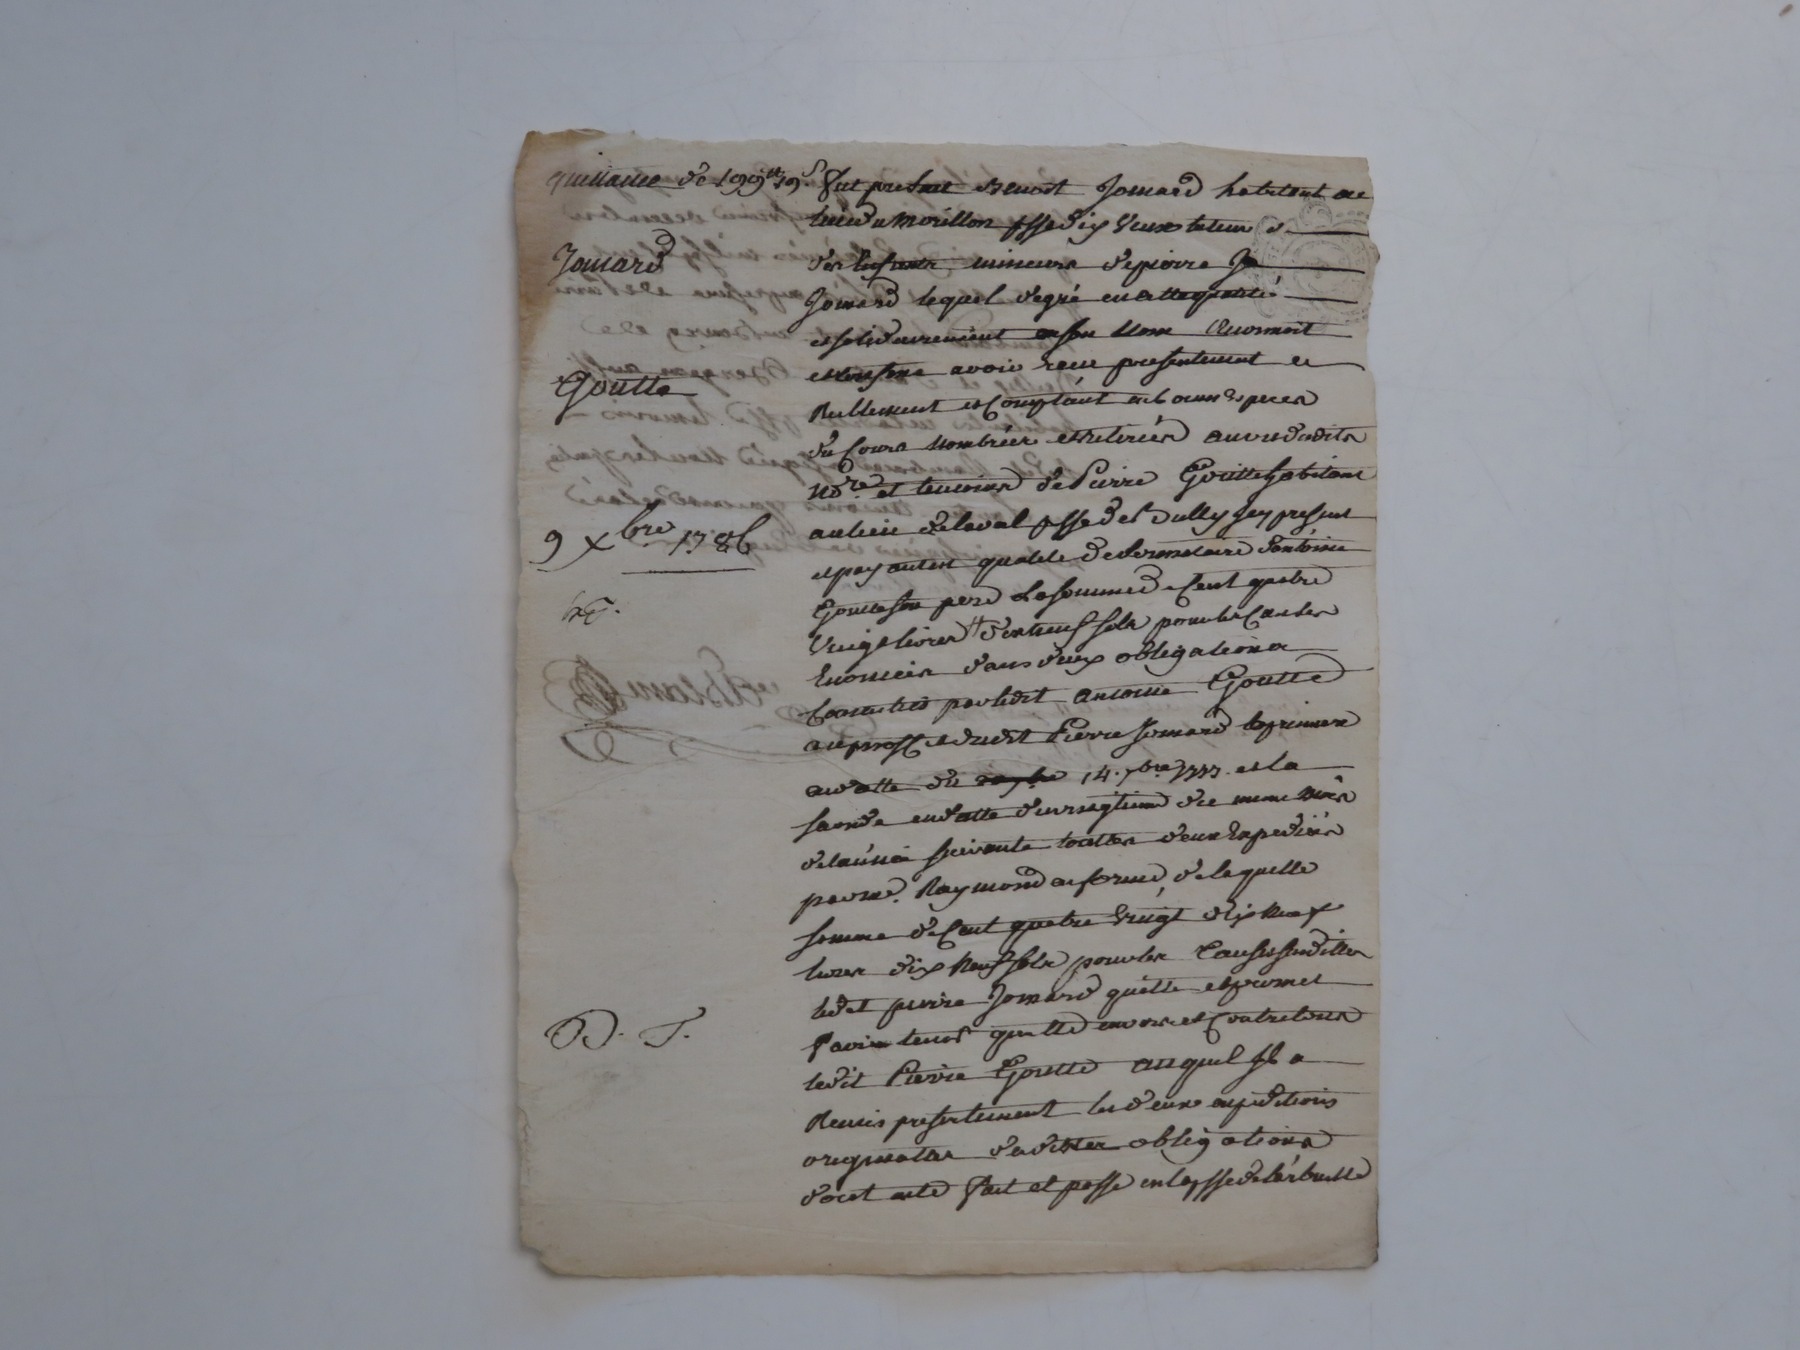 quittance de 199tt 19s
Jomard
Goutte
9 Xbre 1786
D. T.
Fut present Benoit Jomard habitant au
lieu de Morillon psse d'iy tuteur
des enfants mineurs de pierre Jo
Jomard lequel de gré en cette qualité
et solidairement en son nom
avoir receu presentement et
Reellement et Comptant en bonnes especes
du Cours nombrées et retirées au vu desdits
nore et temoins de Pierre Goutte habitant
au lieu de laval psse de st present
et payant en qualité de d'antoine
Goutte son pere la somme de Cent quatre
Vingt livres dix neuf sols pour les Causes
Enoncées dans deux obligations
Consenties par ledit antoine Goutte
au proffit dudit Pierre Jomard la premiere
en datte du 14. 7bre 1777. et la
seconde en datte du vingtieme de meme mois
de l'année suivante touttes deux Expediées
par me. Raymond en forme de laquelle
somme de Cent quatre Vingt dix Neuf
livres dix Neuf sols pour les Causes susdittes
ledit pierre Jomard quitte et promet
faire tenir quitte envers et Contre tous
ledit Pierre Goutte auquel il a
Remis presentement les deux expeditions
originalles desdittes obligations
dont acte fait et passé en la psse de l'arbresle